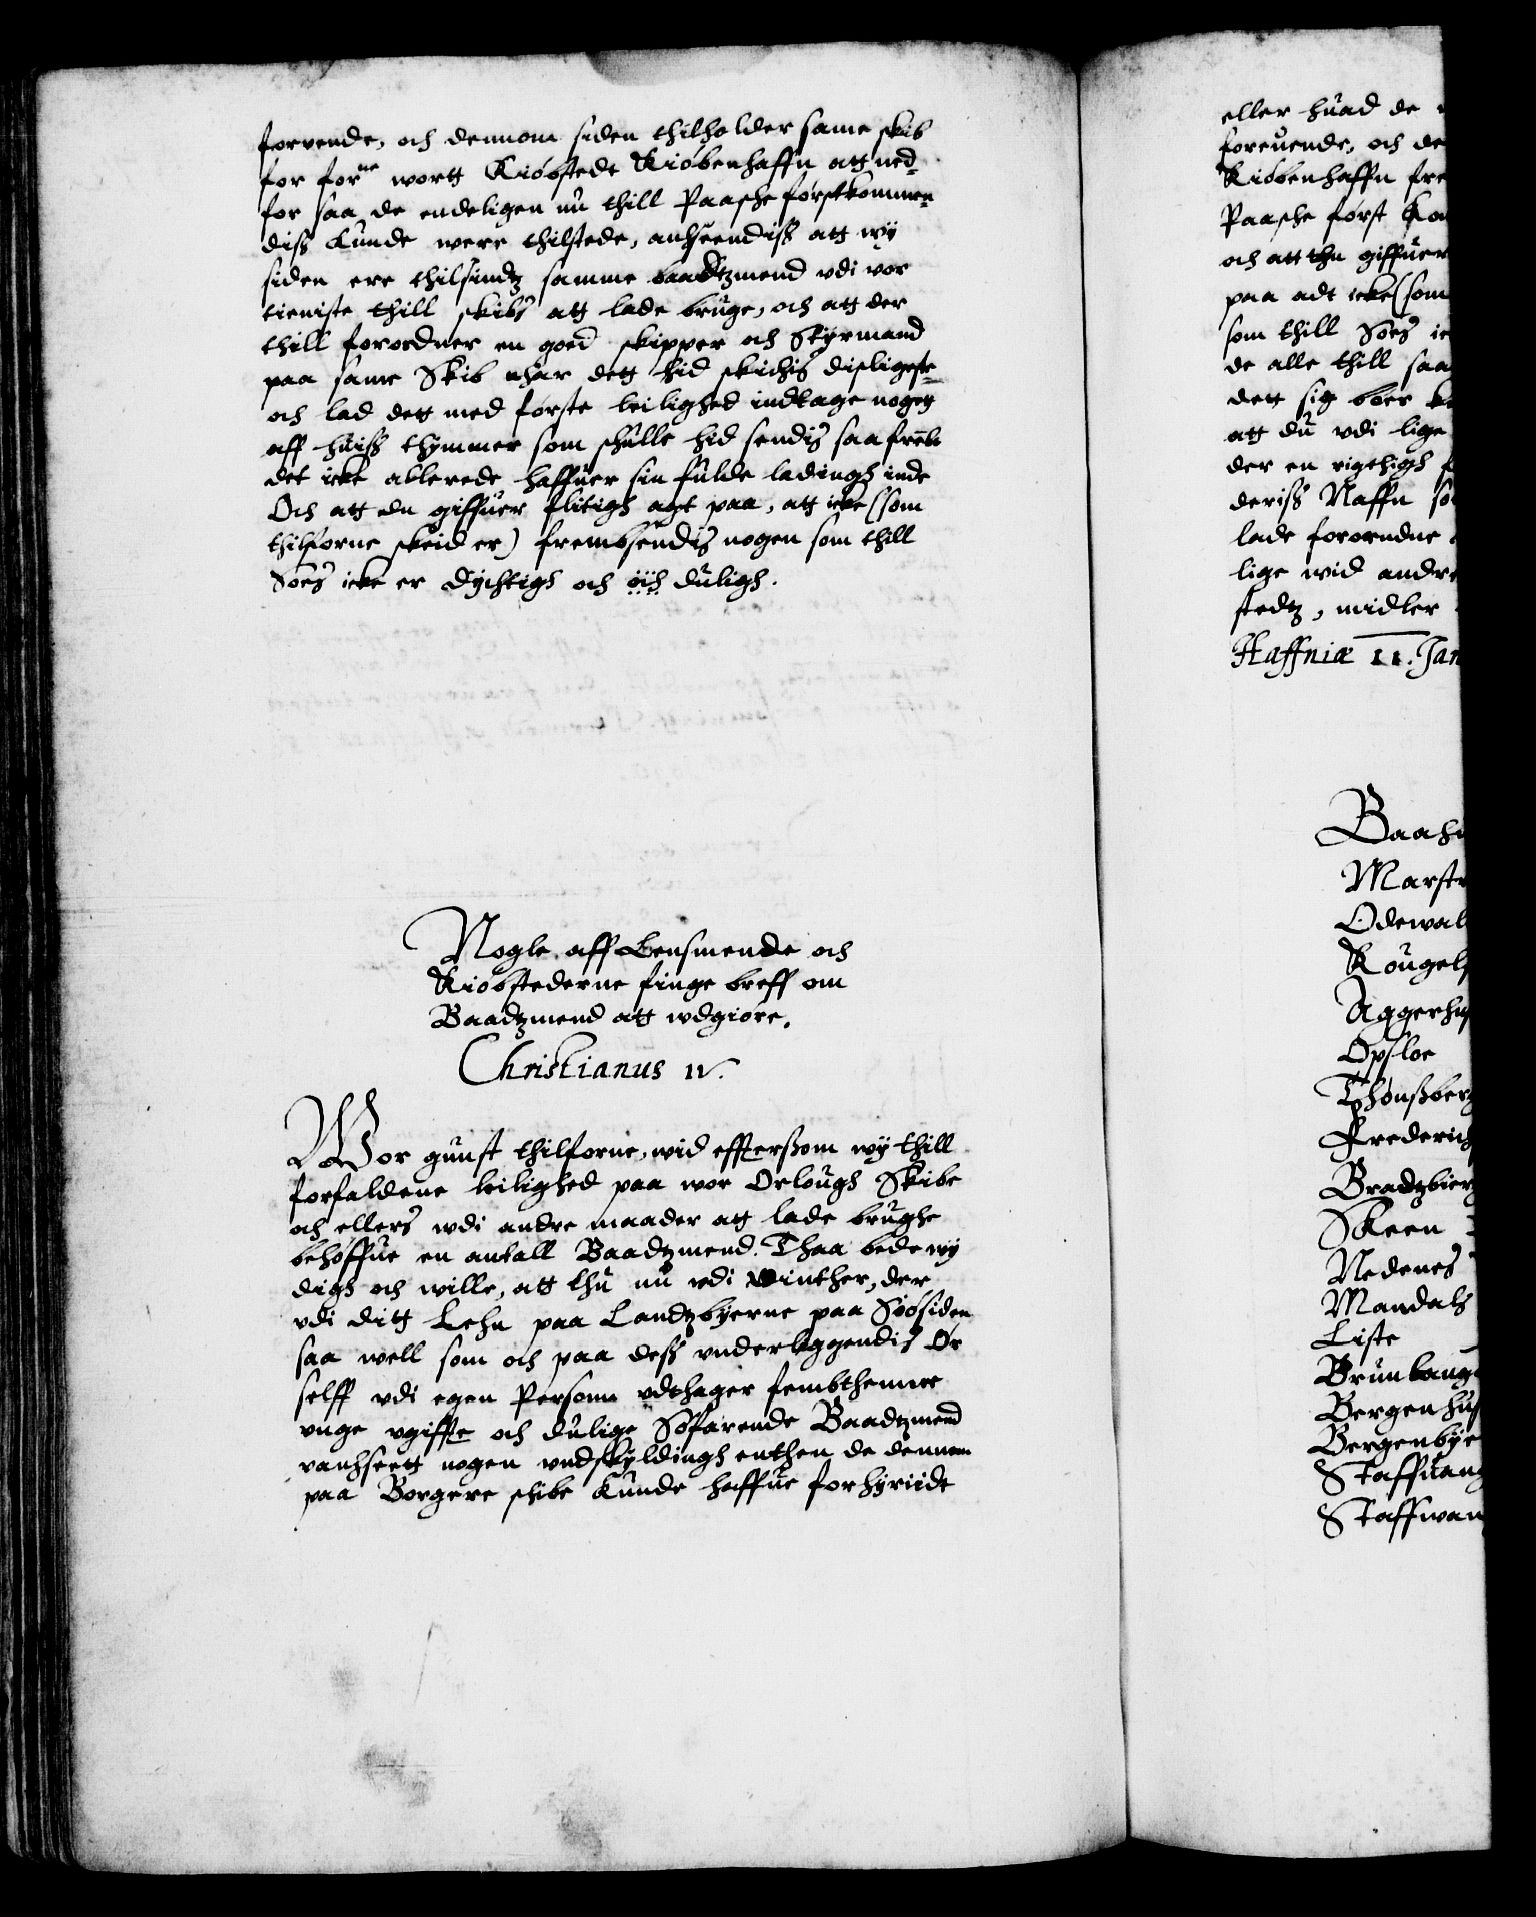 forvende, och dennom siden thilholder same skib
for for^ne wortt Kiøbstedt Kiøbenhaffn att ned-
for saa de endeligen nu thill Paaske førstkommen-
diß kunde were thilstede, anhseendiß att wy
siden ere thilsindtz samme baadtzmend vdi vor
tieniste thill skibs att lade bruge, och att der
thill forordner en goed skipper och Styrmand
paa same Skib nhar dett hid skickis disligeste
och lad dett med første leilighed indtage nogen
aff huiß thymmer som schulle hid sendis saa frembt
det icke allerede haffuer sin fulde ladingh inde
Och att du giffuer flitigh agt paa, att icke (som
thilforne skeid er) frembsendis nogen som thill
Søes icke er dychtigh och duligh.
Nogle aff Lensmende och
Kiøbstederne finge breff om
Baadtzmend att wdgiøre.
Christianus IV.
Wor gunst thilforne, wid effterßom wy thill
forfaldene leilighed paa wor Orlough Skibe
och ellers wdi andre maader att lade brughe
behøffue en antall Baadtzmend. Thaa bede wy
digh och wille, att thu nu vdi Winther, der
vdi ditt Lehn paa Landtzbyerne paa Siøsiden
saa well som och paa deß vnderliggendis Øer
selff vdi egen Personn vdthager fembthenne
vnge vgiffte och dulige Søfarende Baadtzmend
vanhseett nogen vndskyldingh enthen de dennom
paa Borgere schibe kunde haffue forhyriidt
eller huad de
foreuende, och de
Kiøbenhaffn fre
Paasche først Ko
och att thu giffuer
paa adt icke (som
som thill Søes ic
de alle thill saa
dett sig bøer
att du vdi lige
der en rigthigh
deriß Naffn so
lade forordne
lige wid andre
stedtz, midler
Haffniæ 11. Jan
Baahu
Marstr
Odewal
Kougel
Aggerhus
Opsloe
Thønßberg
Frederich
Bradtzbierg
Skeen
Nedenes
Mandals
Liste
Brunlaug
Bergenhus
Bergenbye
Staffuang
Staffwan